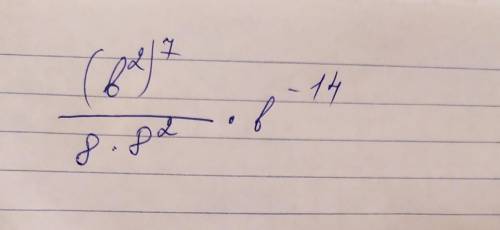 (b²)⁷
/ 8 · 8² · b⁻¹⁴